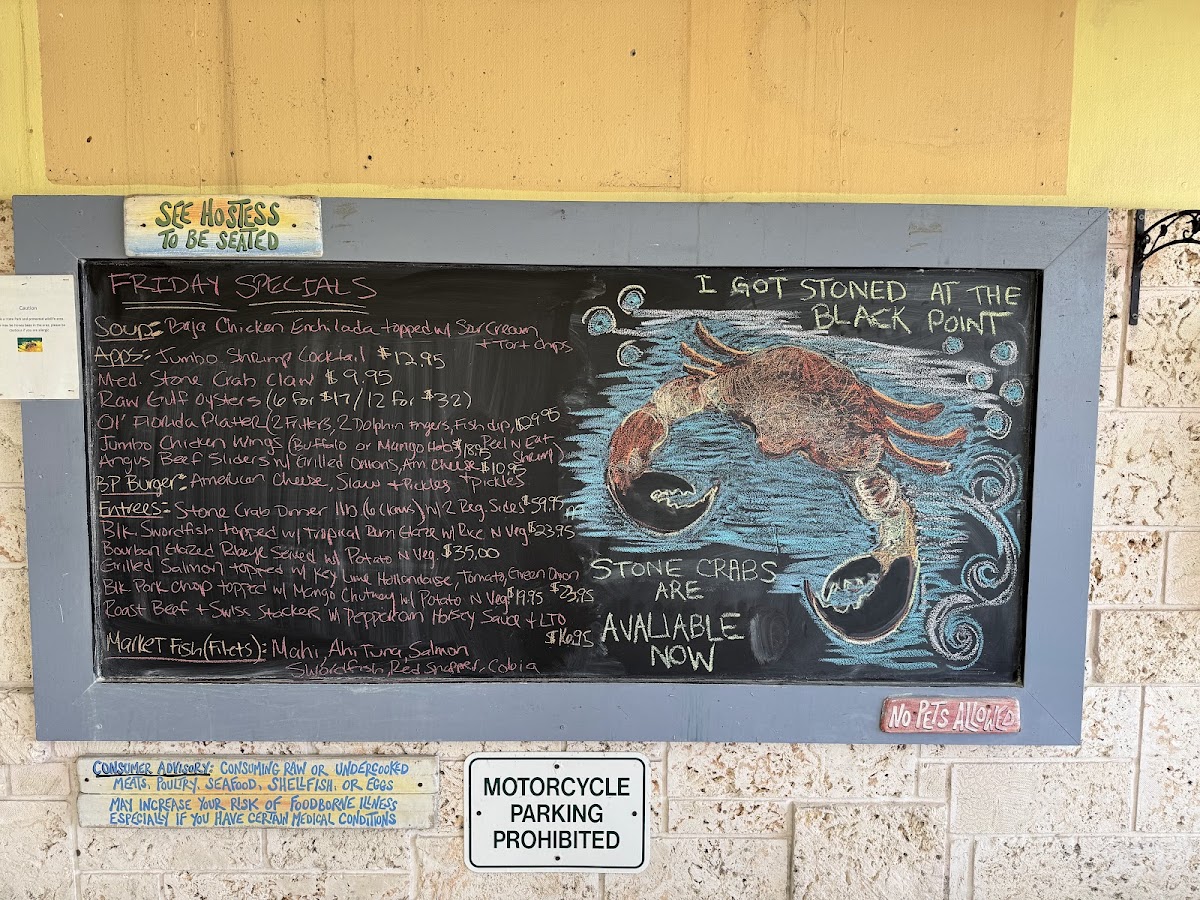 SEE HOSTESS
TO BE SEATED
Caution
FRIDAY SPECIALS
Soup: Baja Chicken Enchilada topped w/ Sour Cream
+ Tort chips
Apps: Jumbo Shrimp Cocktail $12.95
Med. Stone Crab Claw $9.95
Raw Gulf Oysters (6 for $17/12 for $32)
Ol' Florida Platter (2 Fritters, 2 Dolphin Fingers, Fish dip, $29.95
Peel N Eat
Shrimp)
Jumbo Chicken Wings (Buffalo or Mango Hab) $18.95
Angus Beef Sliders w/ Grilled Onions, Am Cheese $10.95
+ pickles
BP Burger: American Cheese, Slaw + Pickles
Entrees: Stone Crab Dinner 1lb (6 claws) w/ 2 Reg Sides $59.95
Blk Swordfish topped w/ Tropical Rum Glaze w/ Rice N Veg $23.95
Bourbon Glazed Ribeye Served w/ Potato N Veg. $35.00
Grilled Salmon topped w/ Key Lime Hollandaise, Tomato, Green Onion
$23.95
Blk Pork Chop topped w/ Mango Chutney w/ Potato N Veg $19.95
Roast Beef + Swiss Stacker w/ Peppercorn Horsey Sauce + LTO
$16.95
Market Fish (Filets): Mahi, Ahi Tuna, Salmon
Swordfish, Red Snapper, Cobia
I GOT STONED AT THE
BLACK POINT
STONE CRABS
ARE
AVALIABLE
NOW
NO PETS ALLOWED
CONSUMER ADVISORY: CONSUMING RAW OR UNDERCOOKED
MEATS, POULTRY, SEAFOOD, SHELLFISH, OR EGGS
MAY INCREASE YOUR RISK OF FOODBORNE ILLNESS
ESPECIALLY IF YOU HAVE CERTAIN MEDICAL CONDITIONS
MOTORCYCLE
PARKING
PROHIBITED